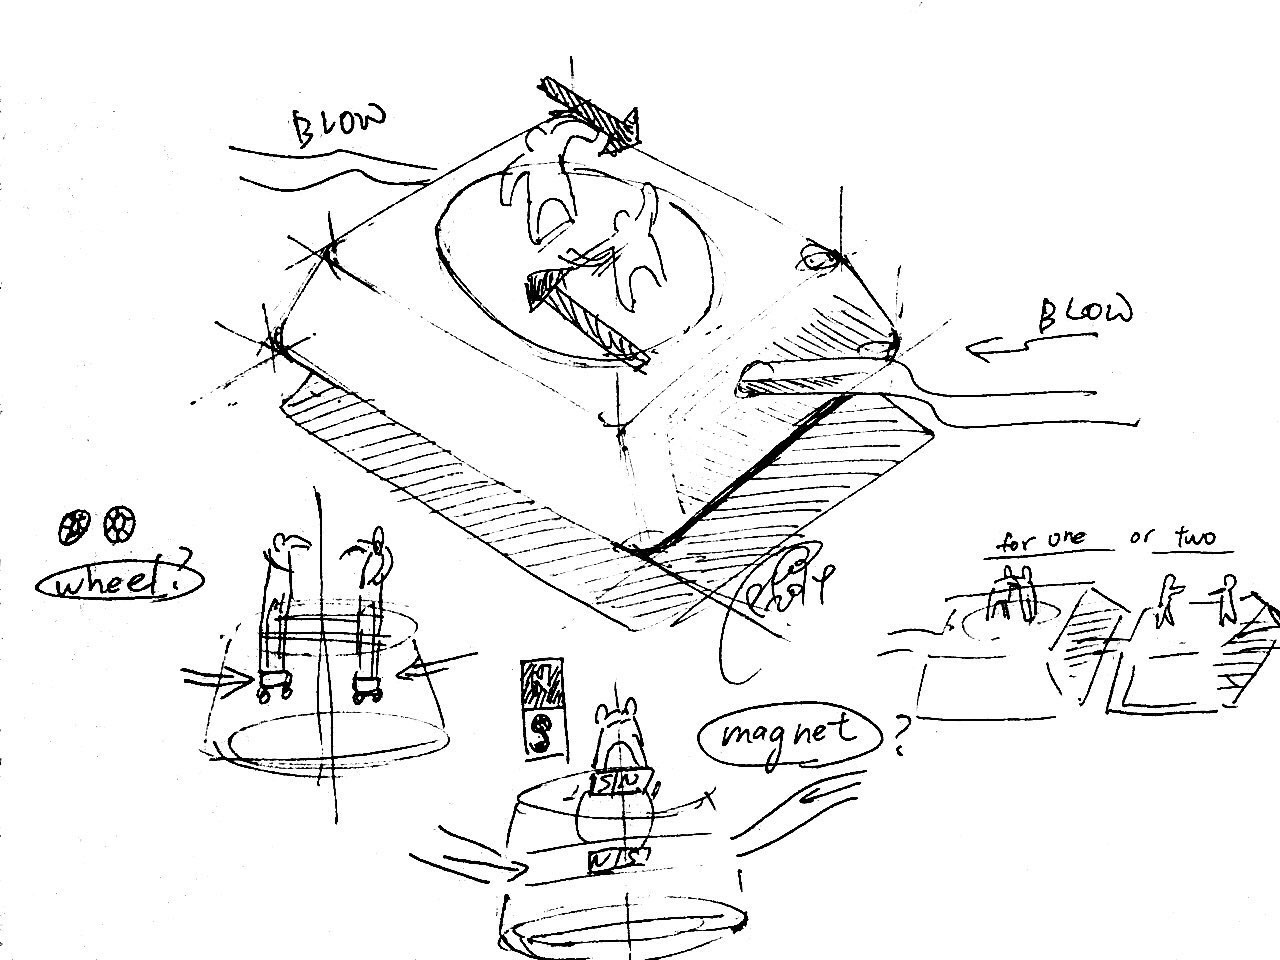 BLOW
BLOW
wheel?
for one or two
N
S
magnet ?
S/N
N/S